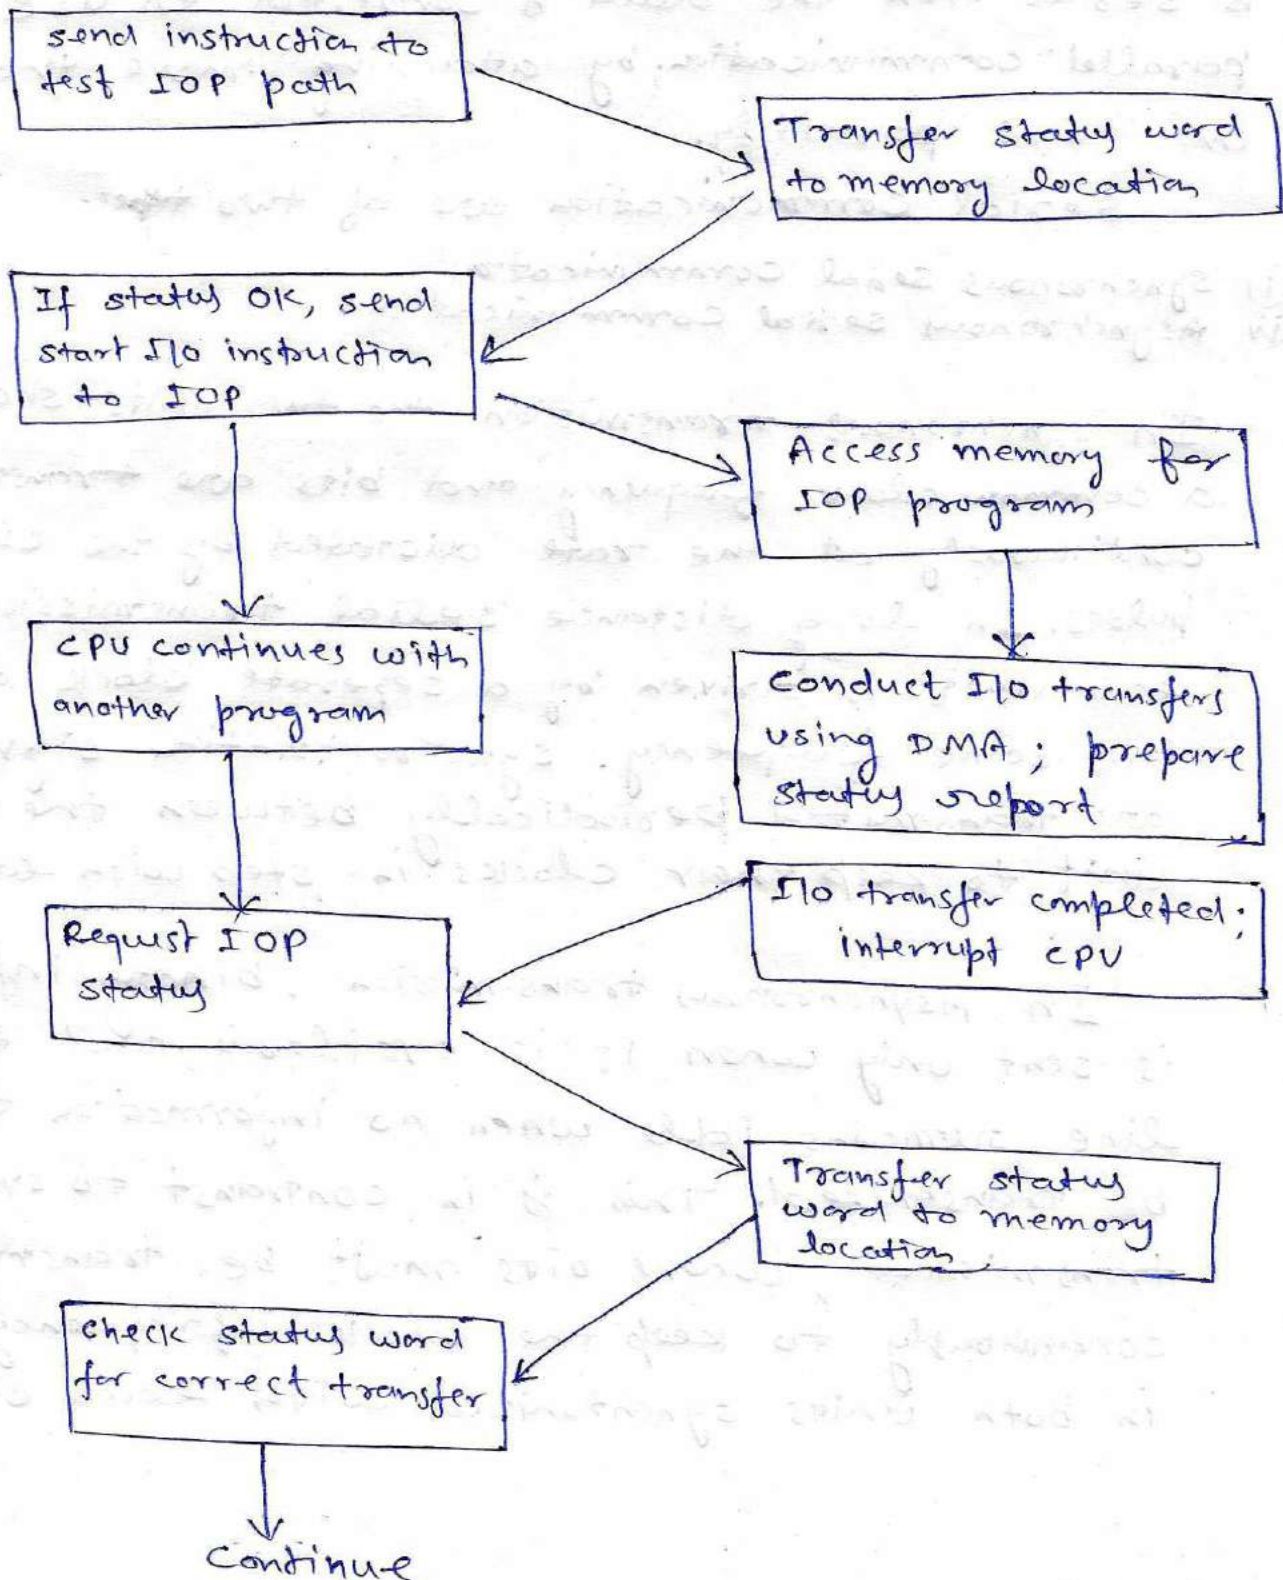 send instruction to
test IOP path
Transfer status word
to memory location
If status OK, send
start I/O instruction
to IOP
Access memory for
IOP program
CPU continues with
another program
Conduct I/O transfers
using DMA; prepare
status report
I/O transfer completed;
interrupt CPU
Request IOP
status
Transfer status
word to memory
location
check status word
for correct transfer
Continue